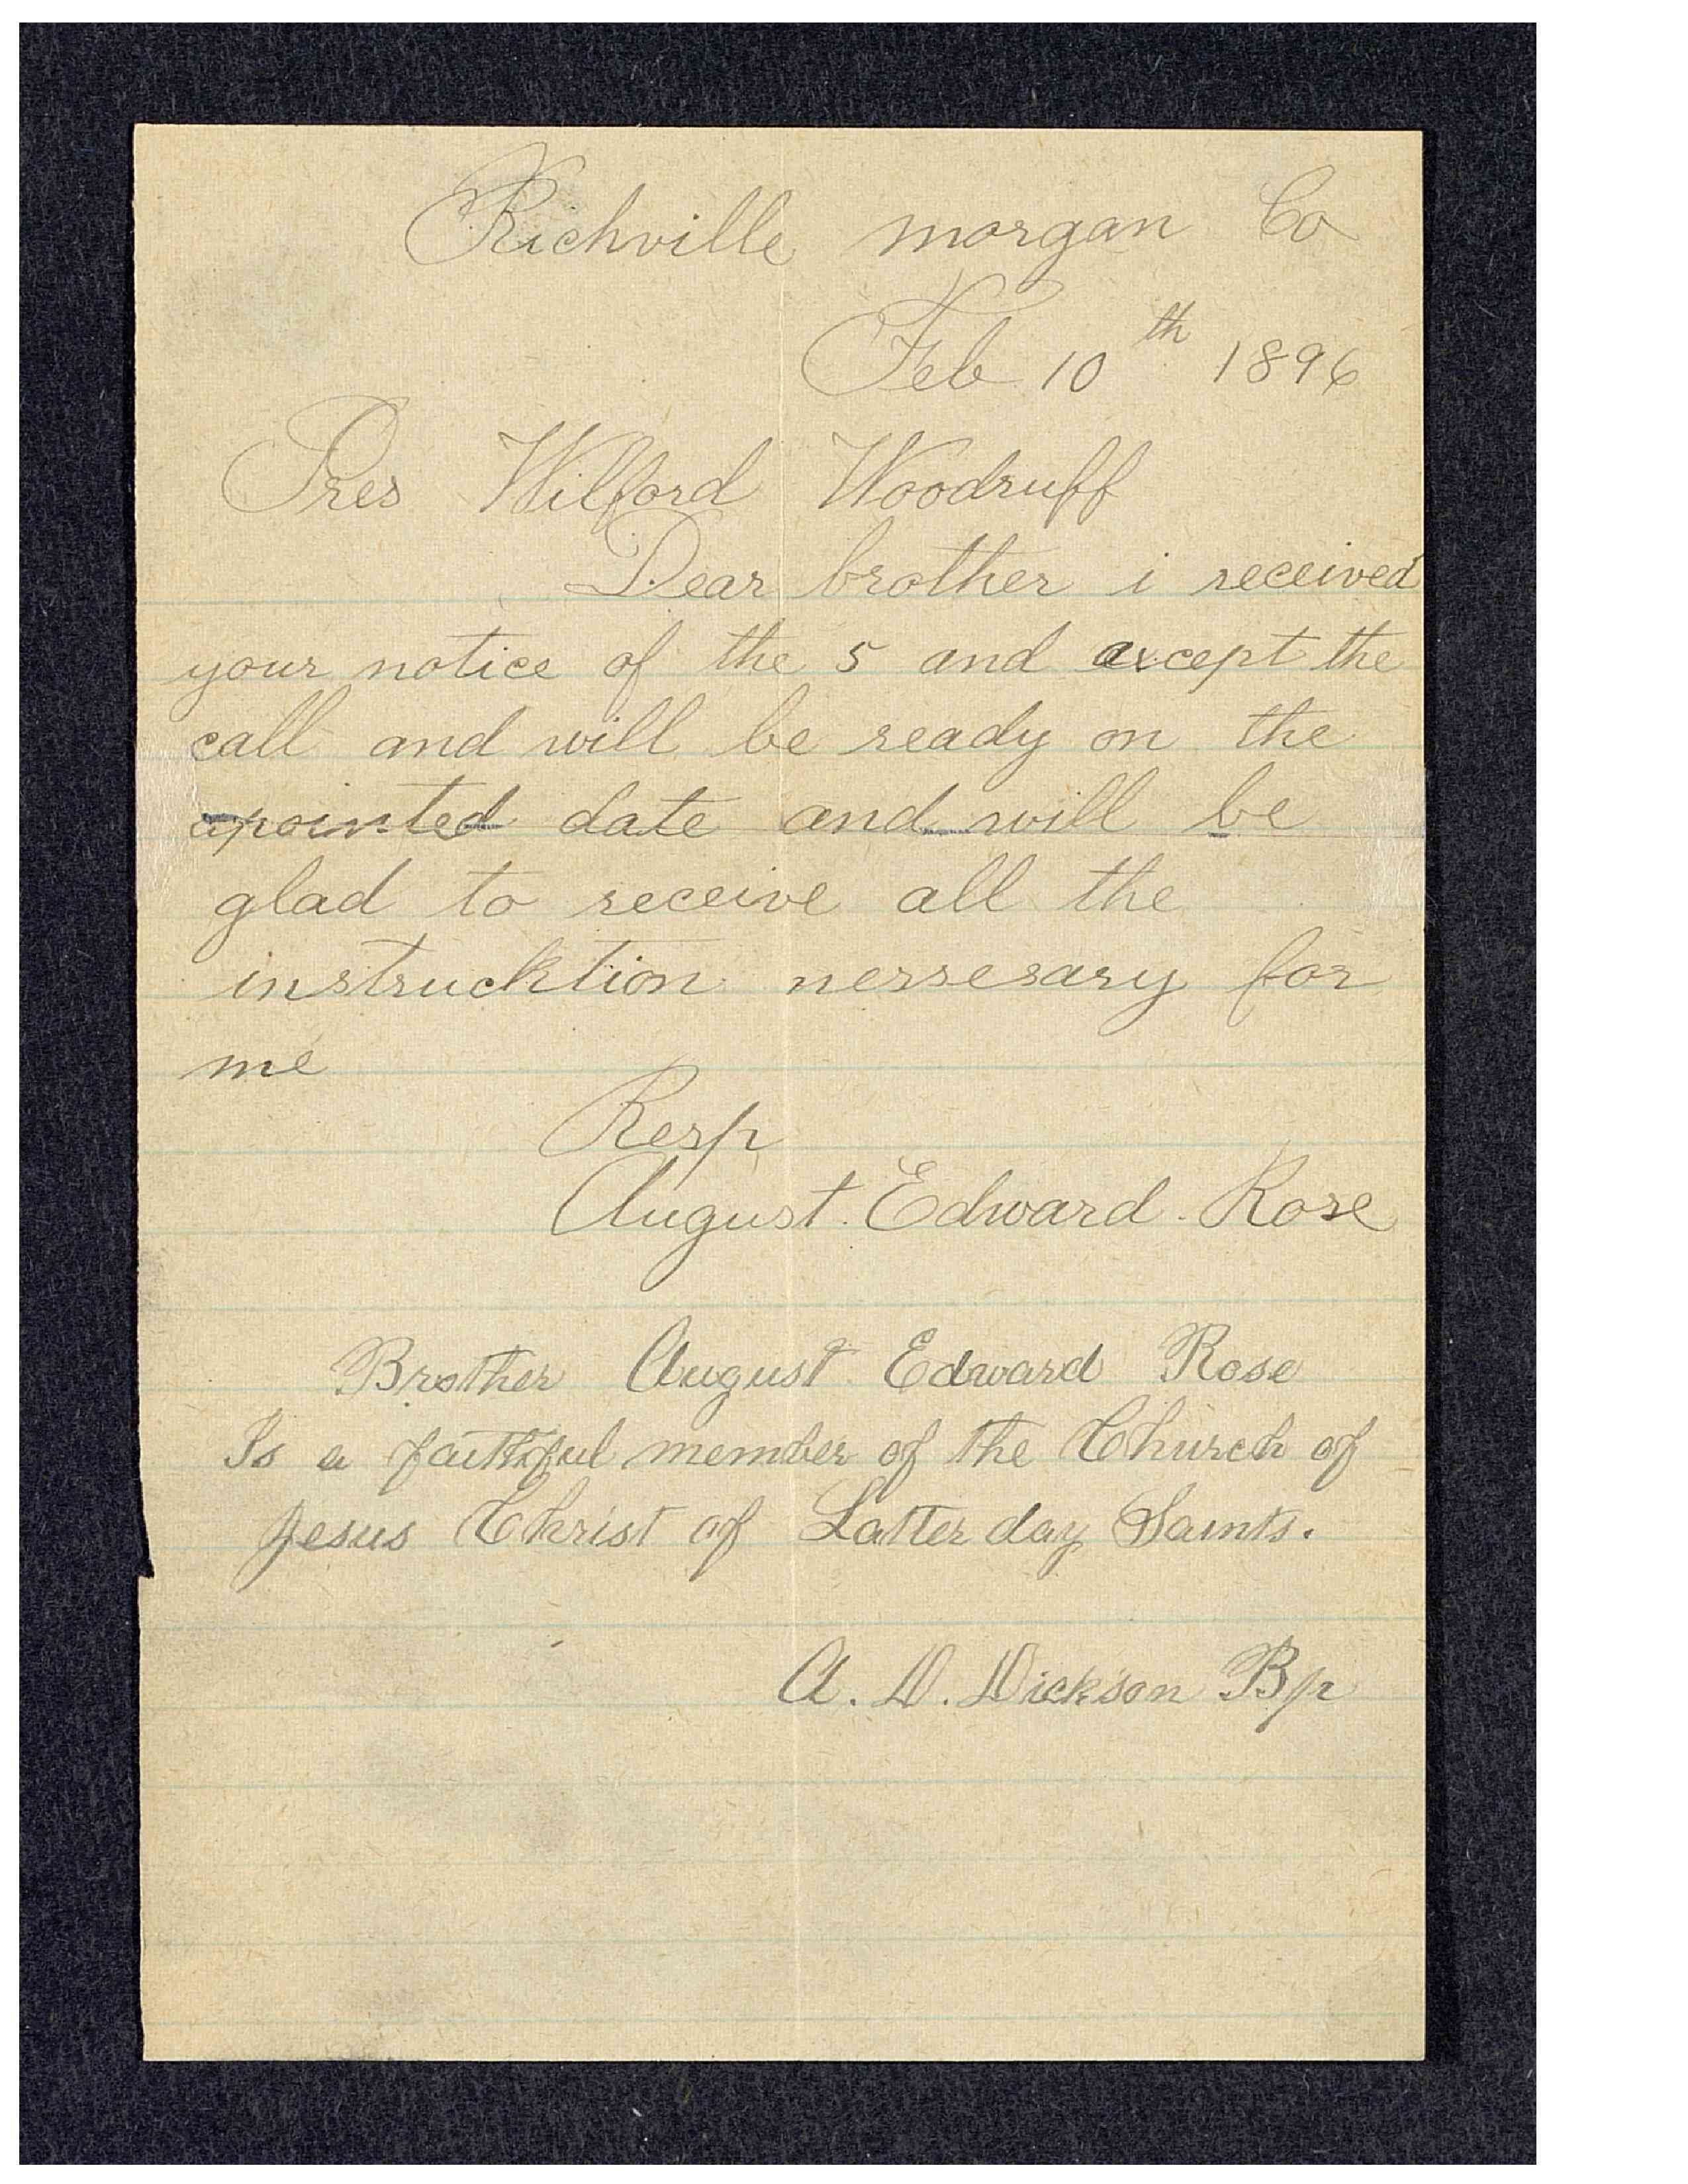 Richville morgan Co
Feb 10th 1896
Pres Wilford Woodruff
Dear brother i received
your notice of the 5 and axcept the
call and will be ready on the
apointed date and will be
glad to receive all the
instrucktion nerresary for
me
Resp
August. Edward. Rose
Brother August Edward Rose
Is a faithful member of the Church of
Jesus Christ of Latter day Saints.
A. D. Dickson Bp